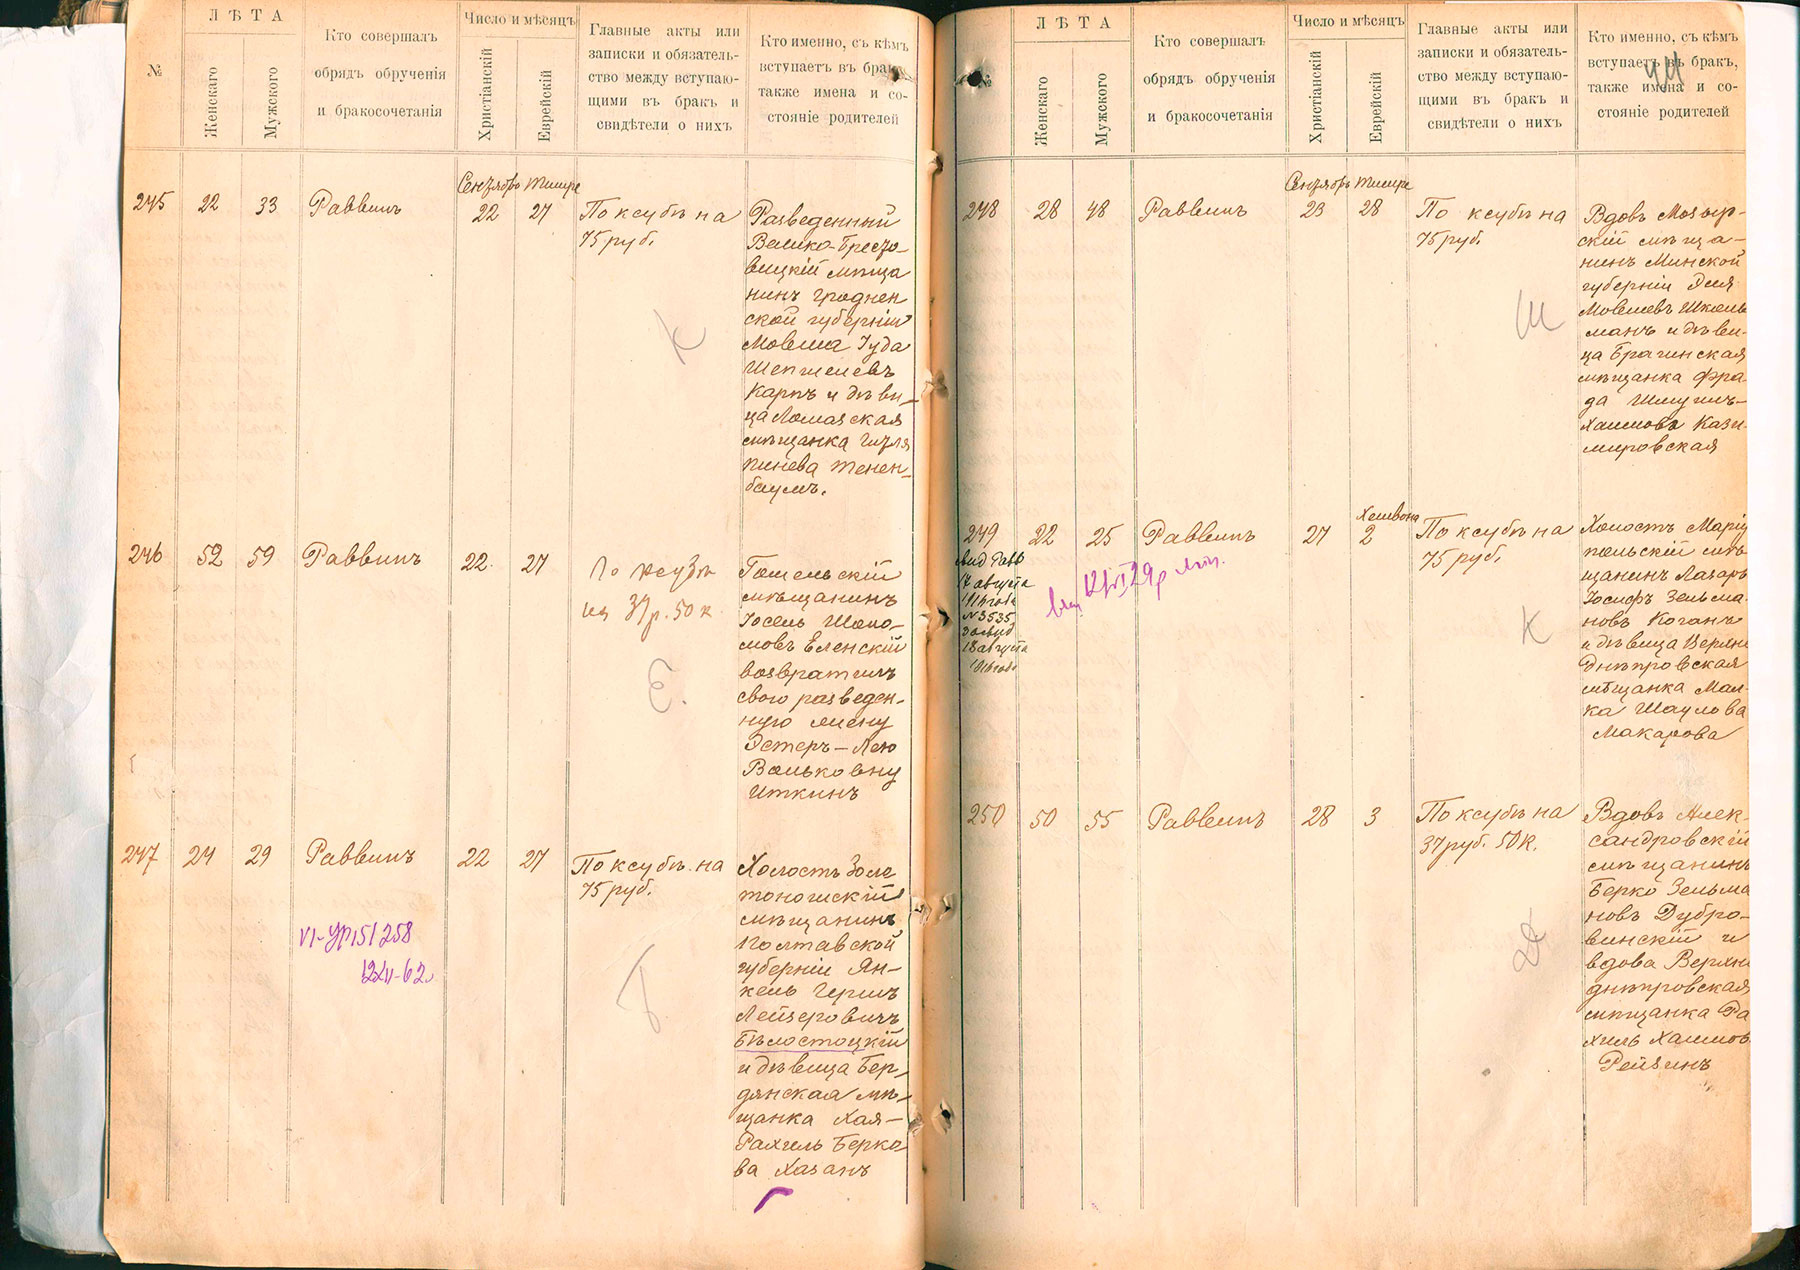 №
ЛѢТА
Женскаго
Мужского
Кто совершалъ
обрядъ обрученія
и бракосочетанія
Число и мѣсяцъ
Христіанскій
Еврейскій
Главные акты или
записки и обязатель-
ство между вступаю-
щими въ бракъ и
свидѣтели о нихъ
Кто именно, съ кѣмъ
вступаетъ въ бракъ,
также имена и со-
стояніе родителей
Сентябрь Тишре
245 22 33 Раввинъ 22 27
По ксубѣ на
75 руб.
Разведенный
Велико-Бресто-
вицкій мѣща
нинъ Гроднен
ской губерніи
Мовша Іуда
Шепшелевъ
Карпъ и дѣви-
ца Ломазская
мѣщанка Гитля
Пинева Тенен-
баумъ.
246 52 59 Раввинъ 22 27
По ксубѣ
на 37р. 50 к.
Гомельскій
мѣщанинъ
Іосель Шоло-
мовъ Еленскій
возвратилъ
свою разведен-
ную жену
Эстеръ-Лею
Вольковну
Иткинъ
Е.
К
247 24 29 Раввинъ 22 27
По ксубѣ на
75 руб.
Холостъ Золо
тоношскій
мѣщанинъ
Полтавской
губерніи Ян-
кель Гершъ
Лейзеровичъ
Бѣлостоцкій
и дѣвица Бер-
дянская мѣ-
щанка Хая-
Рахиль Берко
ва Хазанъ
Б
№
ЛѢТА
Женскаго
Мужского
Кто совершалъ
обрядъ обрученія
и бракосочетанія
Число и мѣсяцъ
Христіанскій
Еврейскій
Главные акты или
записки и обязатель-
ство между вступаю-
щими въ бракъ и
свидѣтели о нихъ
Кто именно, съ кѣмъ
вступаетъ въ бракъ,
также имена и со-
стояніе родителей
Сентябрь Тишре
248 28 48 Раввинъ 23 28
По ксубѣ на
75 руб.
Вдовъ Мозыр-
скій мѣща-
нинъ Минской
губерніи
Мовшевъ Школь
манъ и дѣви-
ца Брагинская
мѣщанка Фра-
да Шмуилъ-
Хаимова Кази-
мировская
Ш
Хешвона
249 22 25 Раввинъ 27 2
17 августа
1916 года
№ 3535
18 августа
1916 года
По ксубѣ на
75 руб.
Холостъ Маріу
польскій мѣ
щанинъ Лазарь
Іосифъ Зельма
новъ Коганъ
и дѣвица Верхне
Днѣпровская
мѣщанка Мал-
ка Шаулова
Макарова
К
250 50 55 Раввинъ 28 3
По ксубѣ на
37 руб. 50 к.
Вдовъ Алек-
сандровскій
мѣщанинъ
Берко Зельма
новъ Дубро-
винскій и
вдова Верхне
днѣпровская
мѣщанка Ра
хиль Хаимов
Рейзинъ
Д